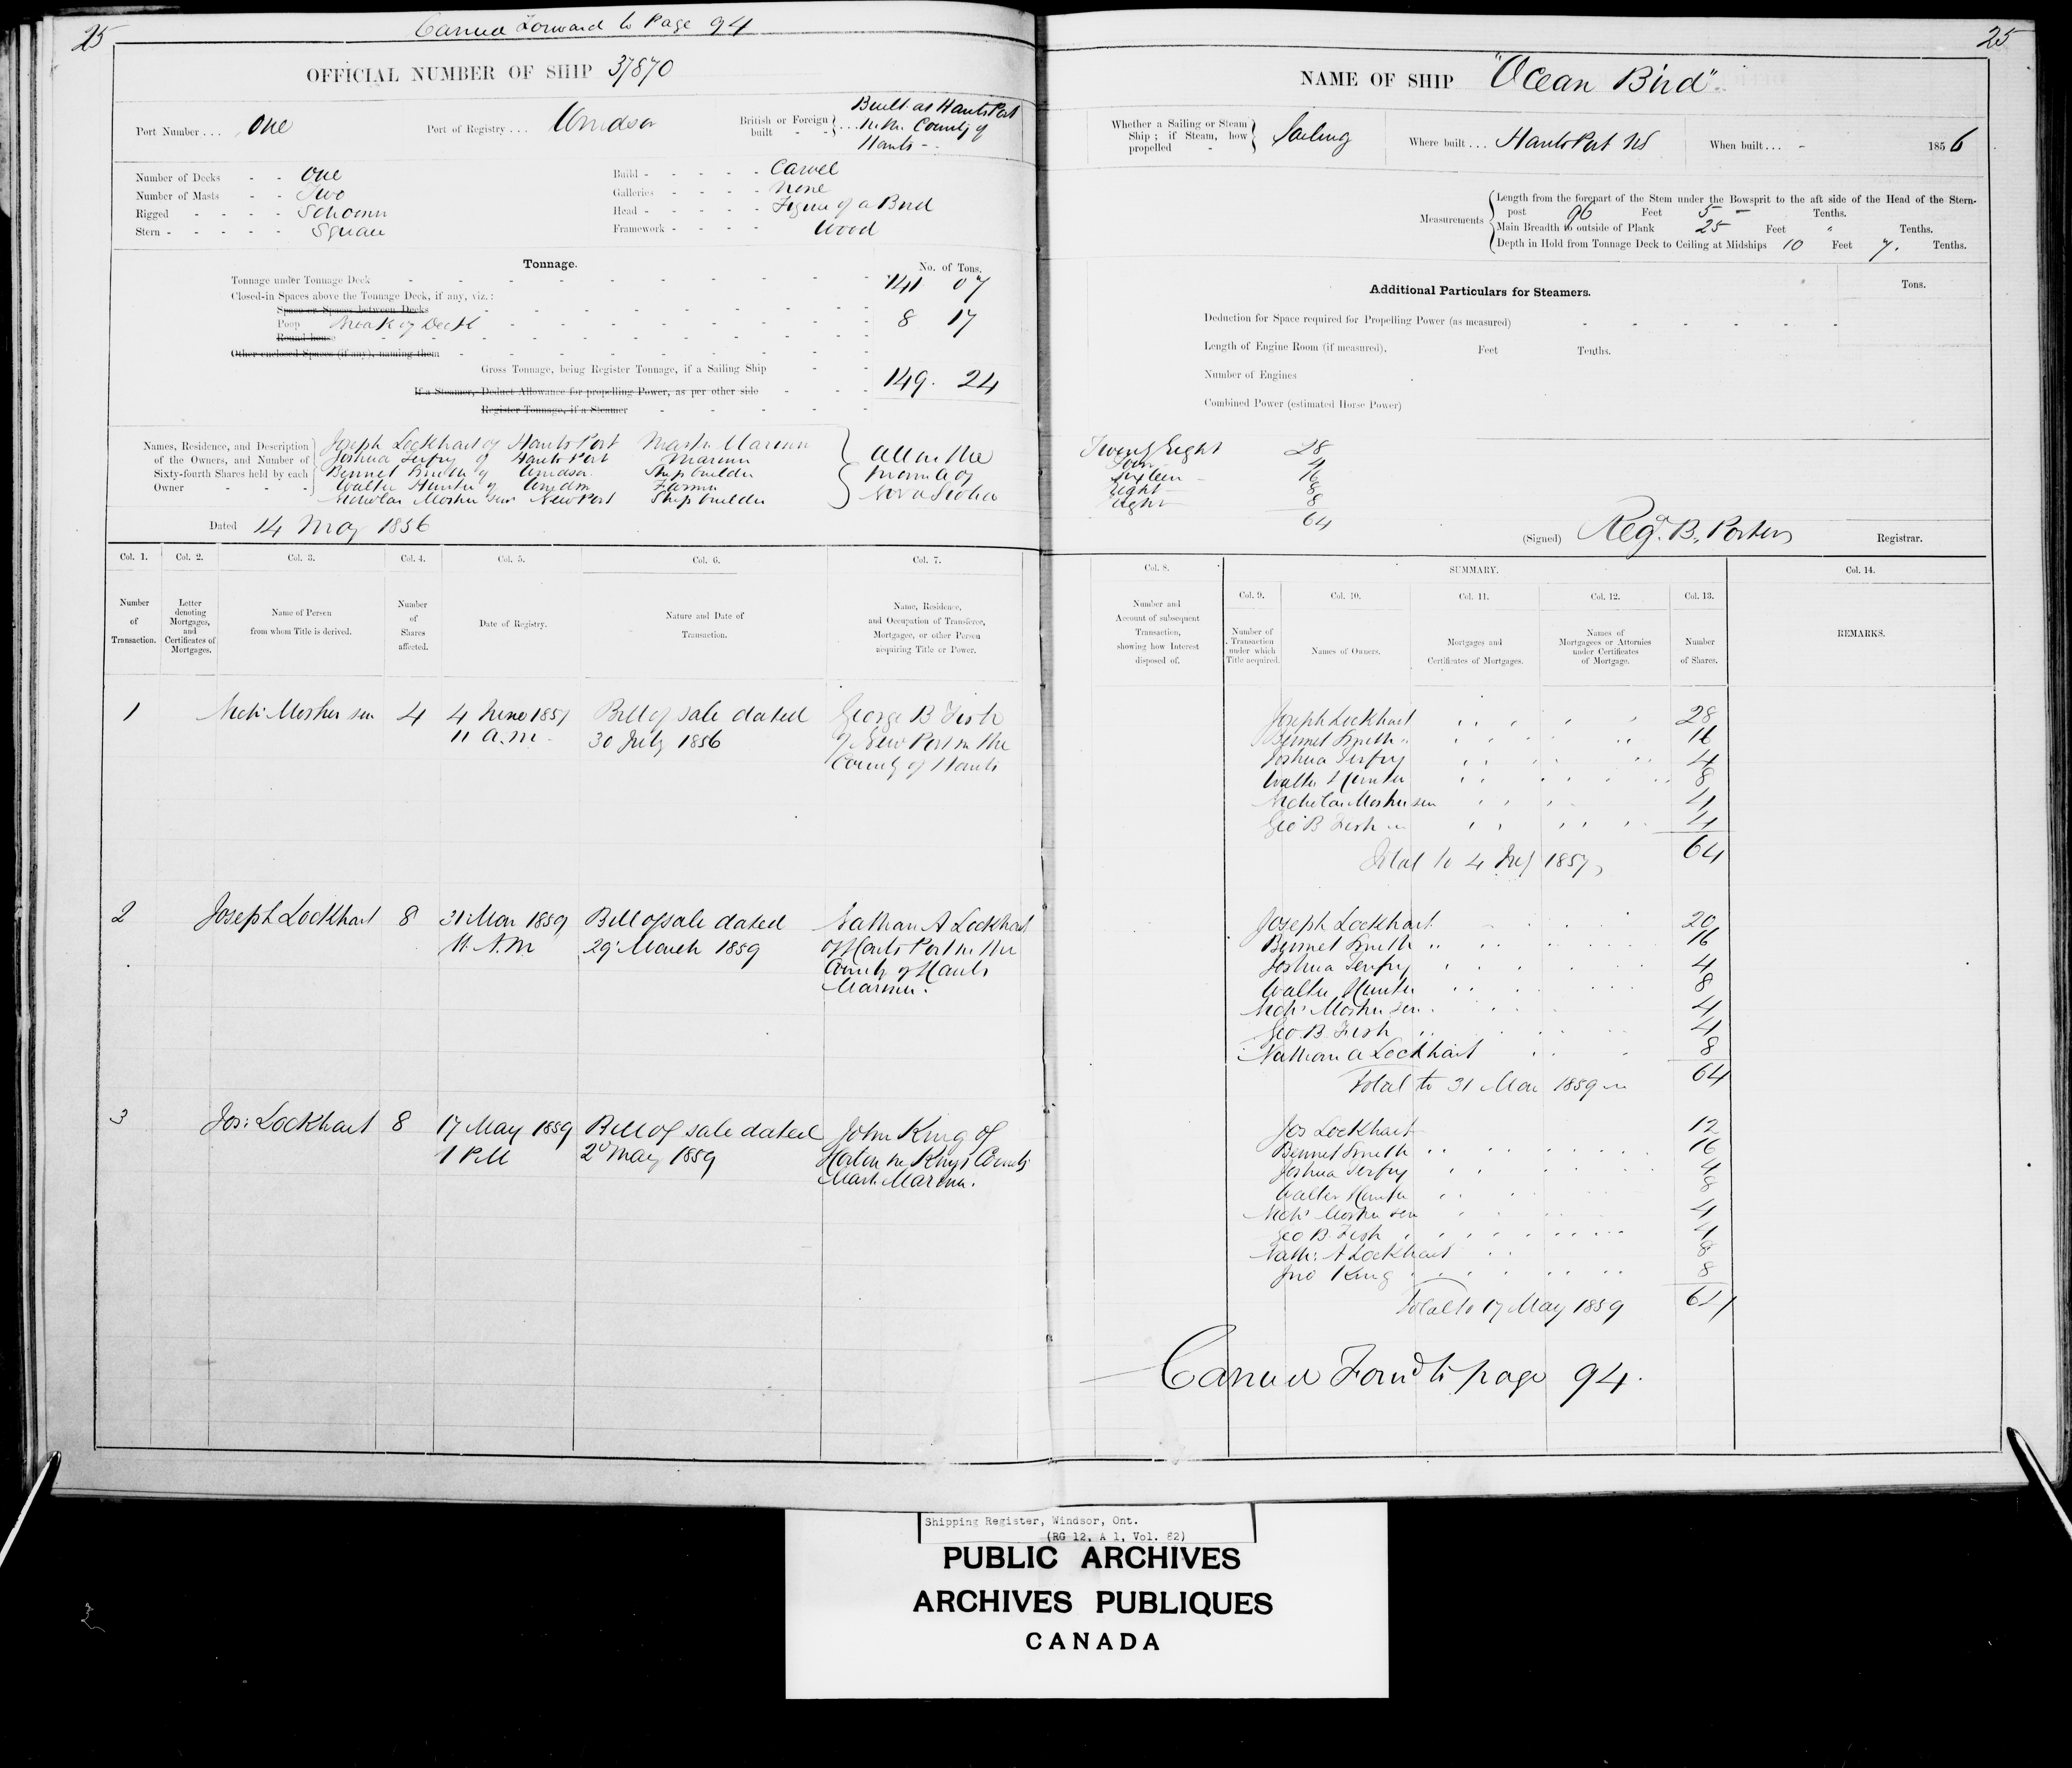 25
Carried Forward to Page 94
OFFICIAL NUMBER OF SHIP 37870
Port Number . . . One
Port of Registry . . . Windsor
British or Foreign built - - . . . Built at Hants Port in the County of Hants -
Number of Decks - - One
Number of Masts - - Two
Rigged - - - - Schooner
Stern - - - - - Square
Build - - - - - Carvel
Galleries - - - - None
Head - - - - - Figure of a Bird
Framework - - - - Wood
Tonnage.
No. of Tons.
Tonnage under Tonnage Deck 141 07
Closed-in Spaces above the Tonnage Deck, if any, viz.:
Space or Spaces between Decks
Poop Break of Deck 8 17
Round-house
Other enclosed Spaces (if any), naming them
Gross Tonnage, being Register Tonnage, if a Sailing Ship 149. 24
If a Steamer, Deduct Allowance for propelling Power, as per other side
Register Tonnage, if a Steamer
Names, Residence, and Description of the Owners, and Number of Sixty-fourth Shares held by each Owner - - -
Joseph Lockhart of Hants Port Master Mariner
Joshua Terfry of Hants Port Mariner
Bennet Smith of Windsor Shipbuilder
Walter Hunter of Windsor Farmer
Nicholas Mosher senr New Port Shipbuilder
All in the
Province of
Nova Scotia
Dated 14 May 1856
Col. 1. Col. 2. Col. 3. Col. 4. Col. 5. Col. 6. Col. 7.
Number of Transaction.
Letter denoting Mortgages, and Certificates of Mortgages.
Name of Person from whom Title is derived.
Number of Shares affected.
Date of Registry.
Nature and Date of Transaction.
Name, Residence, and Occupation of Transferee, Mortgagee, or other Person acquiring Title or Power.
1 Nichs Mosher sen 4 4 June 1857 Bill of sale dated George B Fish
11 a.m. 30 July 1856 of New Port in the
County of Hants
2 Joseph Lockhart 8 31 Mar 1859 Bill of sale dated Nathan A Lockhart
11. A.M 29 March 1859 of Hants Port in the
County of Hants
Mariner.
3 Jos: Lockhart 8 17 May 1859 Bill of sale dated John King of
1 P.M 2d May 1859 Horton in Kings County
Mastr Mariner.
25
NAME OF SHIP "Ocean Bird"
Whether a Sailing or Steam Ship ; if Steam, how propelled - Sailing
Where built . . . Hants Port NS
When built . . . - 1856
Measurements
Length from the forepart of the Stem under the Bowsprit to the aft side of the Head of the Stern-
post 96 Feet 5 - Tenths.
Main Breadth to outside of Plank 25 Feet " Tenths.
Depth in Hold from Tonnage Deck to Ceiling at Midships 10 Feet 7. Tenths.
Additional Particulars for Steamers.
Tons.
Deduction for Space required for Propelling Power (as measured)
Length of Engine Room (if measured). Feet Tenths.
Number of Engines
Combined Power (estimated Horse Power)
Twenty Eight 28
Four 4
Sixteen 16
Eight 8
Eight 8
64
(Signed) Regd. B. Porter Registrar.
Col. 8. SUMMARY. Col. 14.
Col. 9. Col. 10. Col. 11. Col. 12. Col. 13.
Number and Account of subsequent Transaction, showing how Interest disposed of.
Number of Transaction under which Title acquired.
Names of Owners.
Mortgages and Certificates of Mortgages.
Names of Mortgagees or Attornies under Certificates of Mortgage.
Number of Shares.
REMARKS.
Joseph Lockhart 28
Bennet Smith 16
Joshua Terfry 4
Walter Hunter 8
Nicholas Mosher sen 4
Geo B Fish 4
Total to 4 1857 64
Joseph Lockhart 20
Bennet Smith 16
Joshua Terfry 4
Walter Hunter 8
Nichs Mosher sen 4
Geo. B. Fish 4
Nathan A Lockhart 8
Total to 31 Mar 1859 64
Jos Lockhart 12
Bennet Smith 16
Joshua Terfry 4
Walter Hunter 8
Nichs Mosher sen 4
Geo B. Fish 4
Nath: A Lockhart 8
Jno King 8
Total to 17 May 1859 64
Carried Forwd to page 94.
Shipping Register, Windsor, Ont.
(RG 12, A 1, Vol. 82)
PUBLIC ARCHIVES
ARCHIVES PUBLIQUES
CANADA